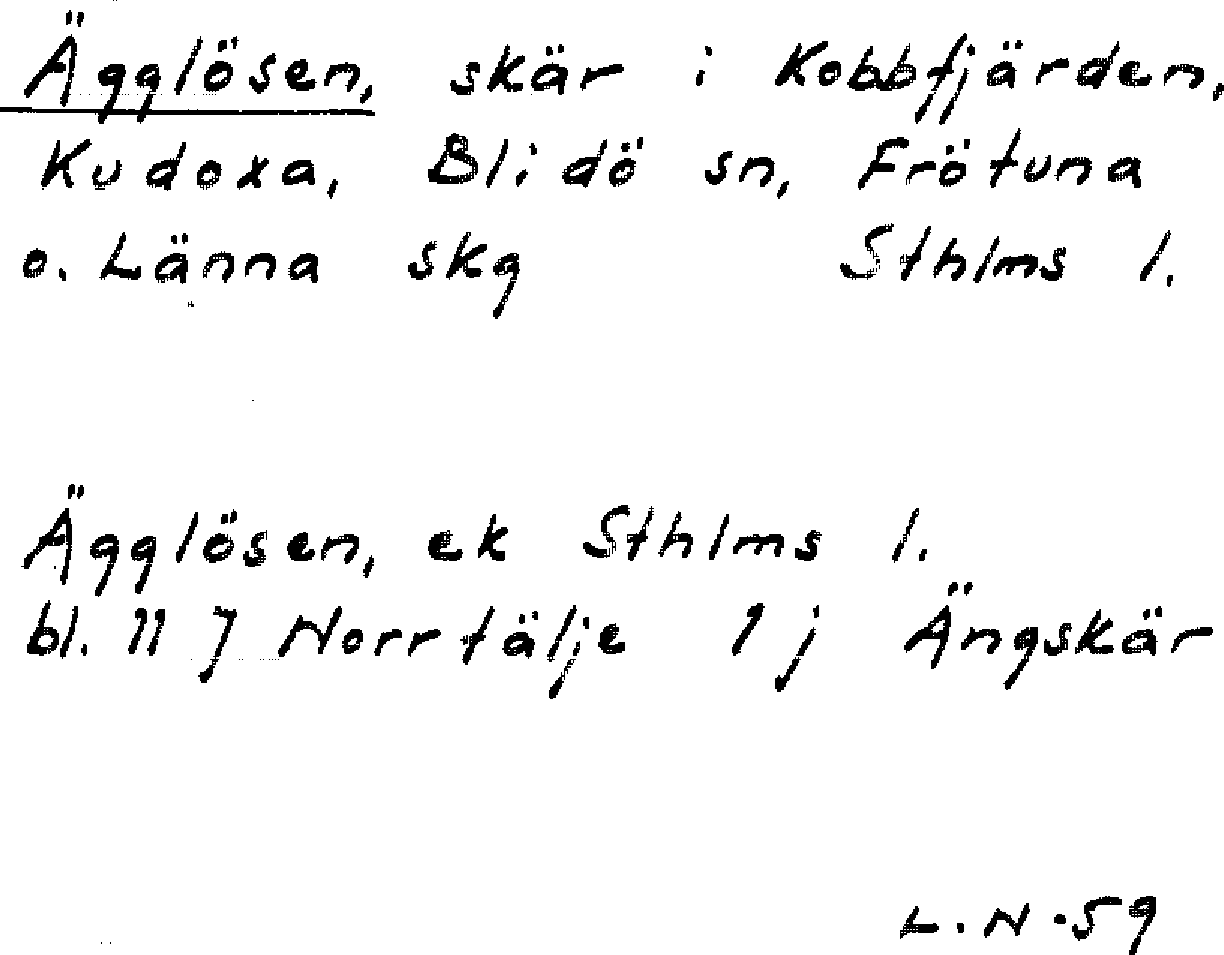 Ägglösen, skär i Kobbfjärden,
Kudoxa, Blidö sn, Frötuna
o. Länna skg Sthlms l.
Ägglösen, ek Sthlms l.
bl. 11 J Norrtälje 1 j Ängskär
L.N. 59